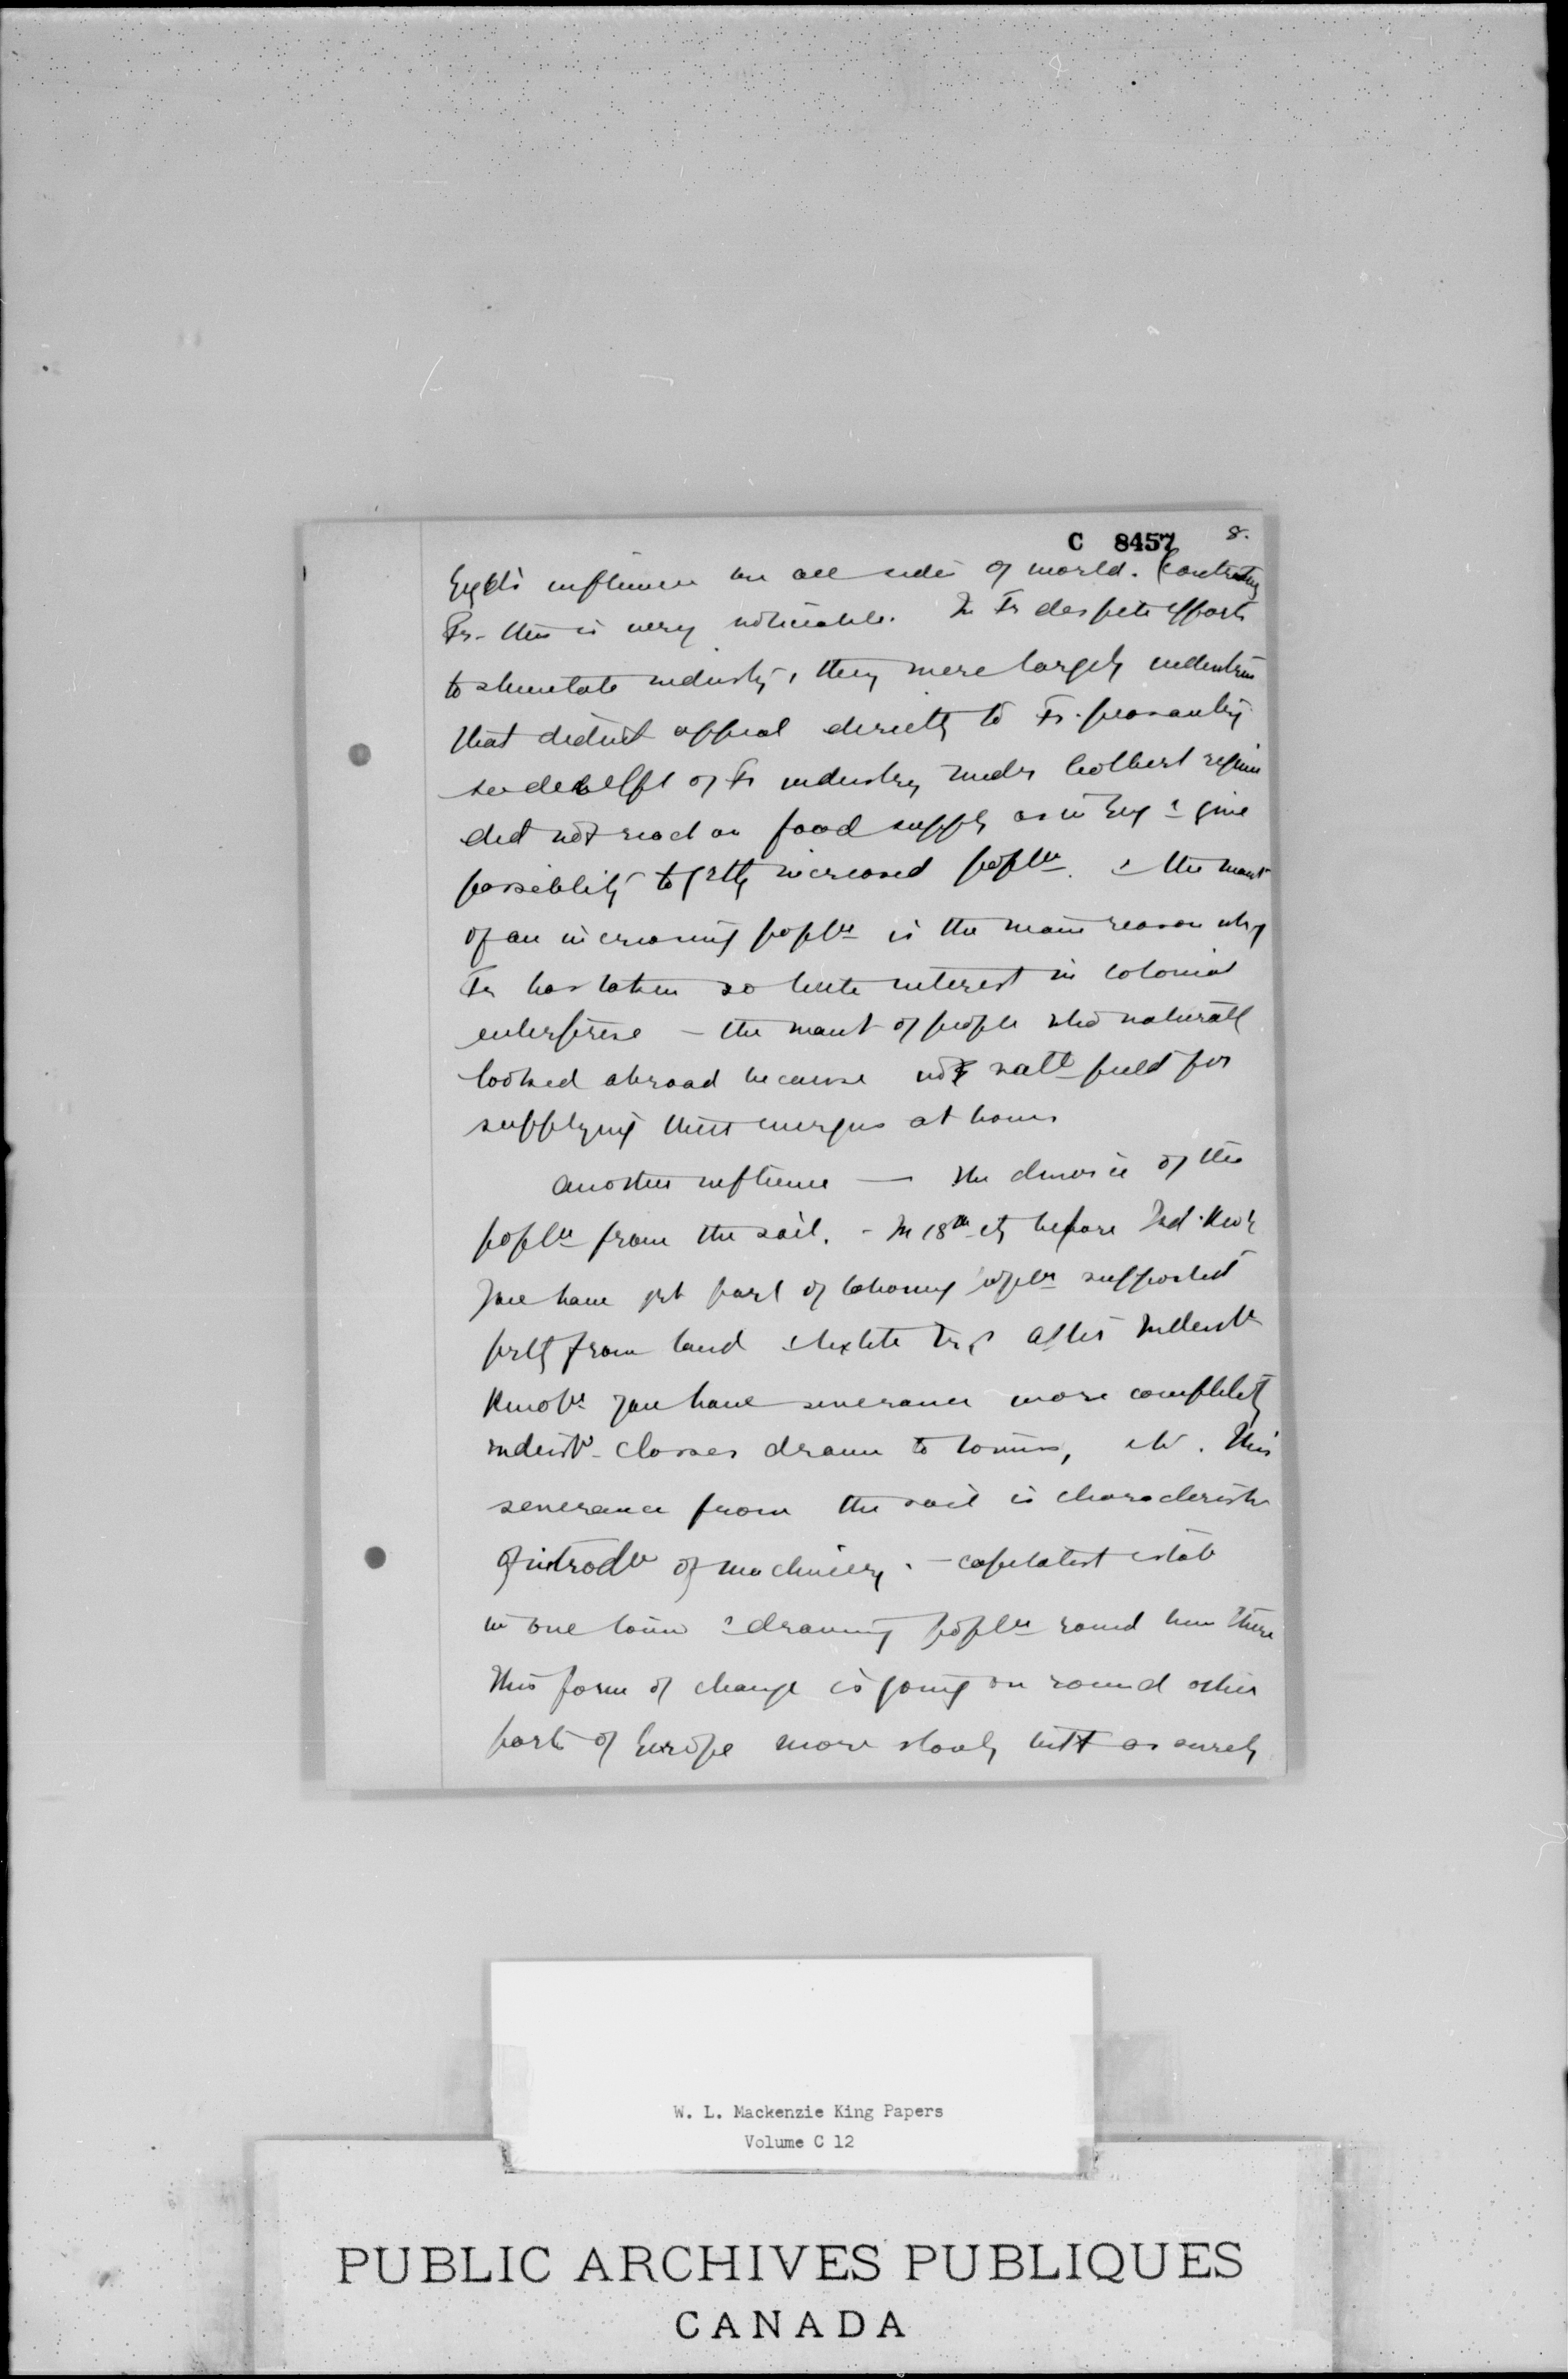 C 8457 8.
Engld's influence on all sides of world. Contrasting
Fr. this is very noticeable. In Fr despite efforts
to stimulate industry, they were largely industries
that didn't appeal directly to Fr. peasantry
so develpt of Fr industry under Colbert regime
did not react on food supply as in Eng & give
possibility to gtly increased poptn. & the want
of an increasing poptn is the main reason why
Fr has taken so little interest in colonial
enterprise – the want of people who naturally
looked abroad because not field for
supplying their energies at home
Another influence — the divorce of the
poptn from the soil. – In 18th cty before Ind. Rev'n
you have grt part of laboring poptn supported
prtly from land & textile After Industl
Revoltn you have severance more completely
industl classes drawn to towns, etc. This
severance from the soil is characteristic
of introdtn of machinery. – capitalist estab
in one town & drawing poptn round him there
This form of change is going on round other
parts of Europe more slowly but as surely
W. L. Mackenzie King Papers
Volume C 12
PUBLIC ARCHIVES PUBLIQUES
CANADA